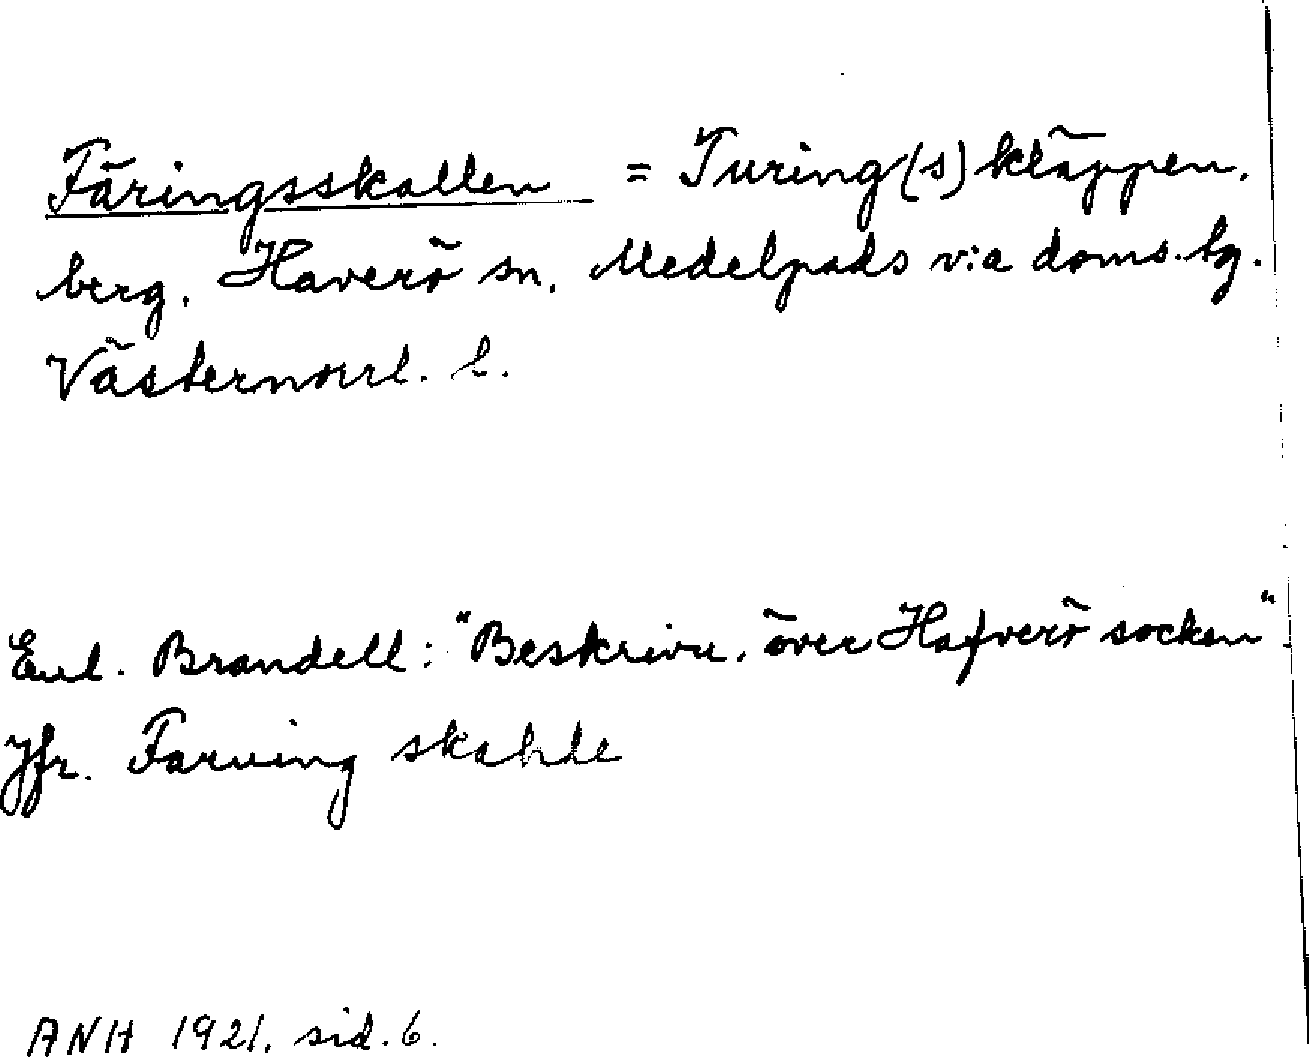 Färingsskallen = Turing(s)kläppen,
berg, Haverö sn, Medelpads v:a doms. sg.
Västernorrl. l.
Enl. Brandell: "Beskrivn. över Hafverö socken".
Jfr. Farving skahle
ANH 1921, sid. 6.